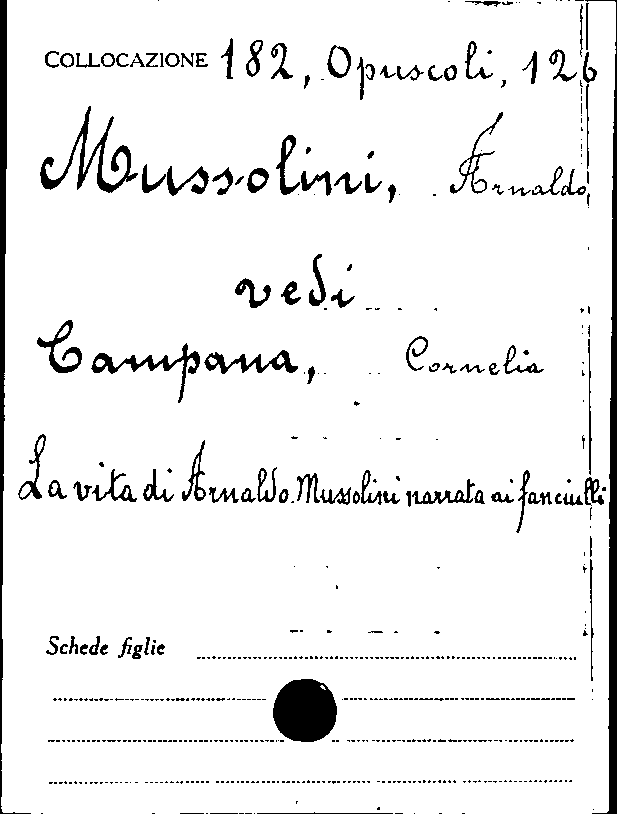 COLLOCAZIONE 182, Opuscoli, 126
Mussolini, Arnaldo
vedi
Campana, Cornelia
La vita di Arnaldo Mussolini narrata ai fanciulli
Schede figlie